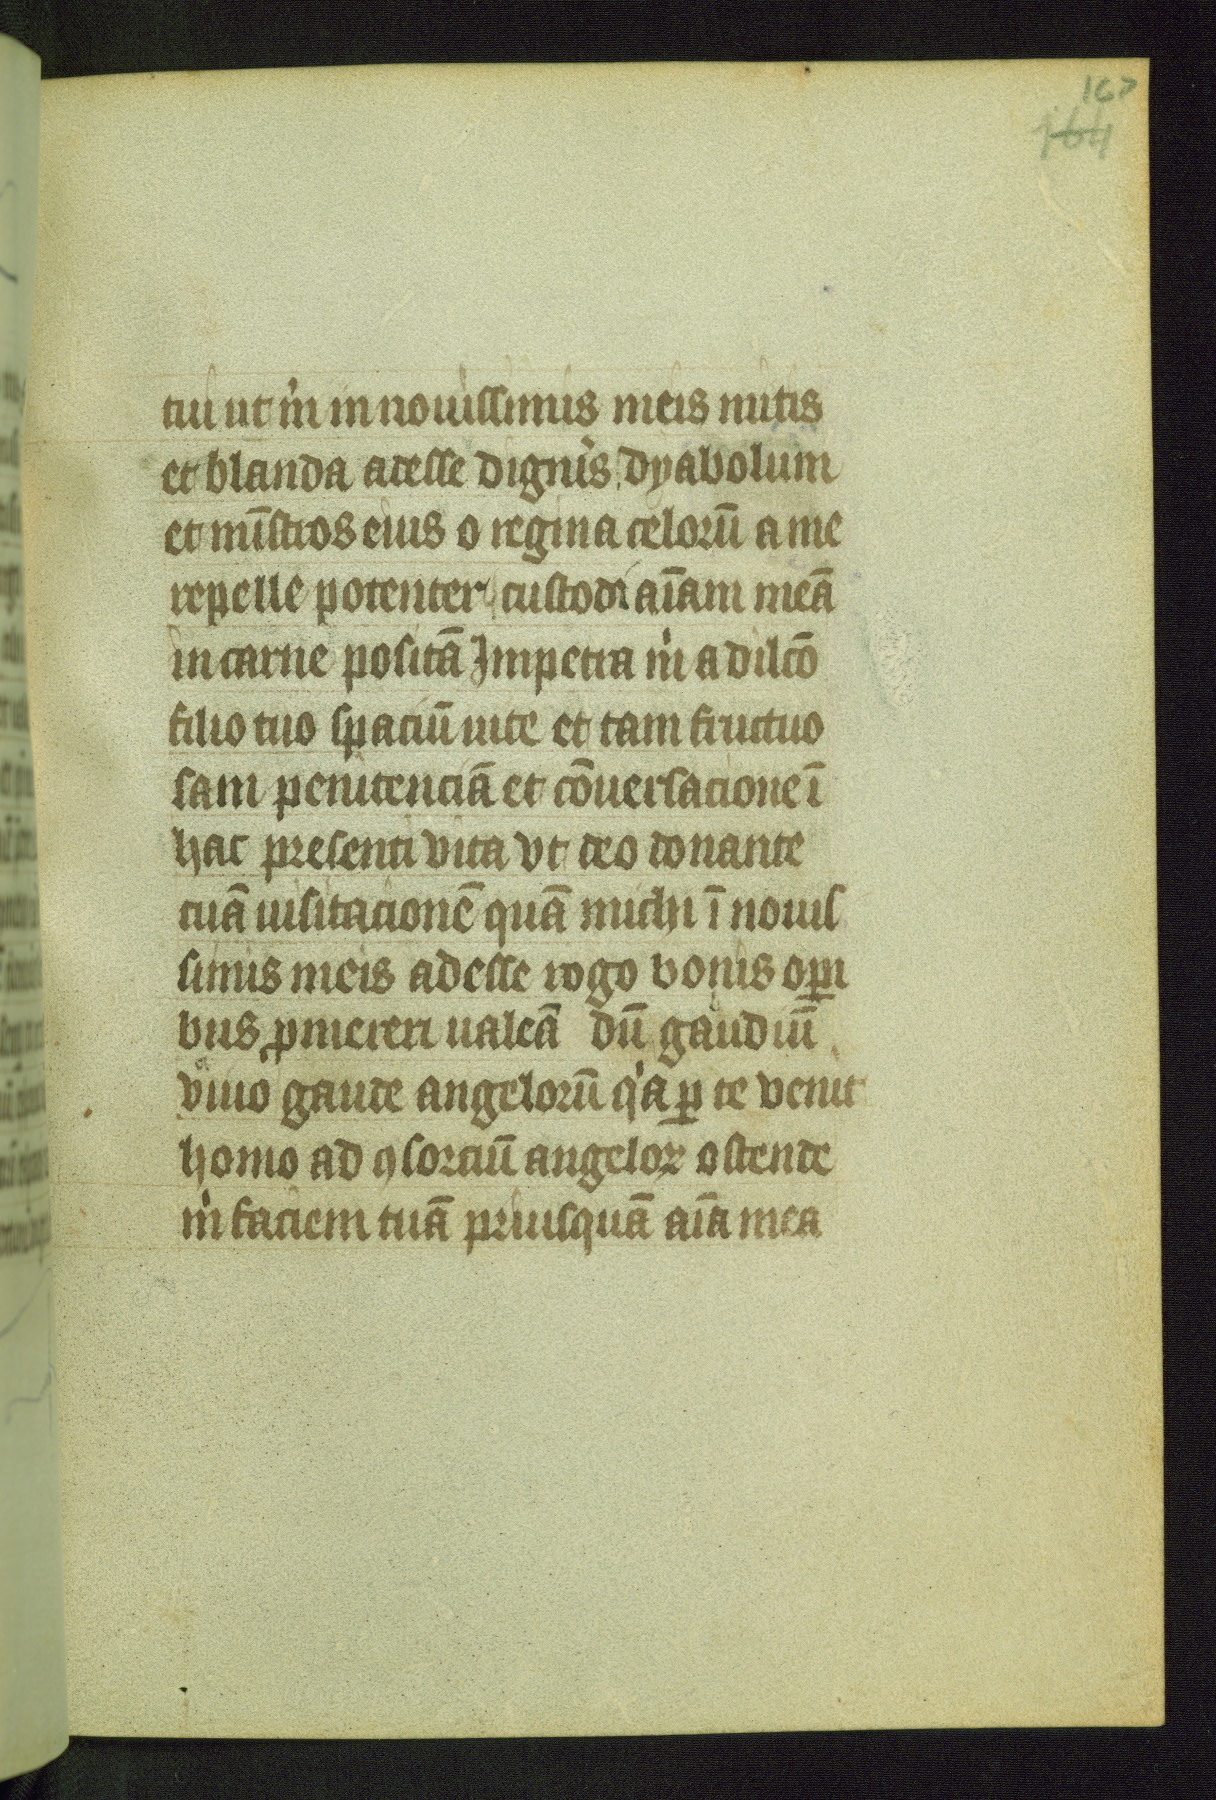 167
164
tui ut m̉ in nouissimis meis mitis
et blanda adesse dign̉is dyabolum
et mīstros eius o regina celorū a me
repelle potenter custodi aīam meā
in carne positā Impetra m̉ a dilcō
filio tuo spaciū uite et tam fructuo
sam penitenciā et cōuersacione ī
hac presenti vita vt deo donante
tuā uisitacionē quā michi ī nouis
simis meis adesse rogo bonis oꝑi
bus ꝓmereri ualeā dū gaudiū
viuo gaude angelorū q̉a ꝑ te venit
homo ad ꝯsorciū angeloꝝ ostende
m̉ faciem tuā priusquā aīa mea